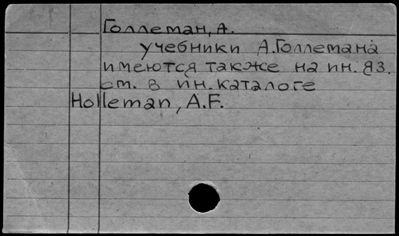 Голлеман, А.
учебники А.Голлемана
имеются также на ин. яз.
см. в ин. каталоге
Holleman, A.F.